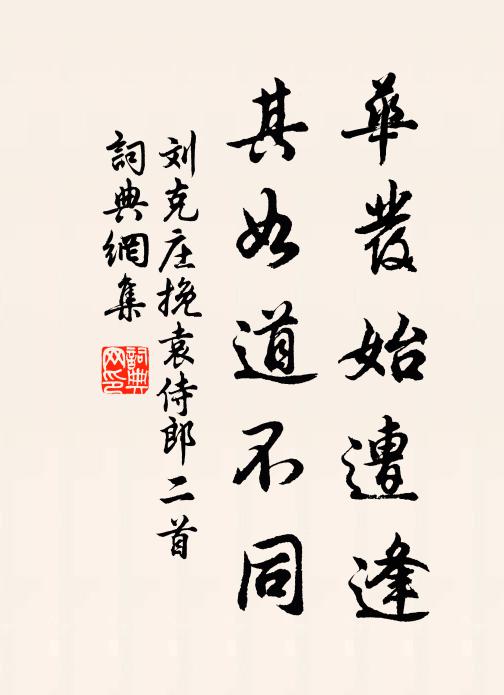 華發始遭逢
其如道不同
刘克庄挽袁侍郎二首
詞典網集
詞典網印